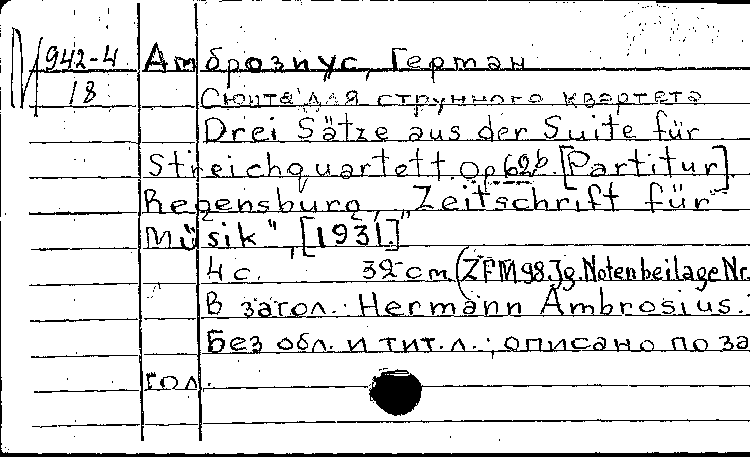 М 942-4 Амброзиус, Герман
18 Сюита для струнного квартета
Drei Sätze aus der Suite für
Streichquartett. Op 62b. [Partitur].
Regensburg, „Zeitschrift für
Musik", [1931.]
4 с. 32 cm. (ZFM 98. Jg. Notenbeilage Nr.
В загол.: Hermann Ambrosius.
Без обл. и тит. л.; описано по за
гол.